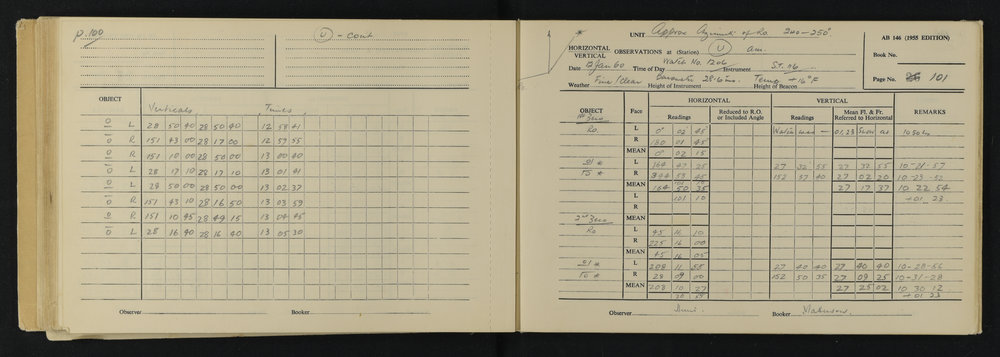 p.100
(U) - cont
OBJECT
Verticals Times
L 28 50 40 28 50 40 12 58 41
R 151 43 00 28 17 00 12 59 55
R 151 10 00 28 50 00 13 00 40
L 28 17 10 28 17 10 13 01 41
L 28 50 00 28 50 00 13 02 37
R 151 43 10 28 16 50 13 03 59
R 151 10 45 28 49 15 13 04 45
L 28 16 40 28 16 40 13 05 30
Observer Booker
UNIT Approx Azimuth of Ro. 240-250°
AB 146 (1955 EDITION)
HORIZONTAL
VERTICAL
OBSERVATIONS at (Station) (U) am.
Book No.
Date 12 Jan 60 Time of Day Watch No. 1206 Instrument ST. 116
Page No. 101
Weather Fine/Clear Height of Instrument Barometer 28.6 ins. Height of Beacon Temp +16°F
HORIZONTAL VERTICAL
OBJECT Face Readings Reduced to R.O. or Included Angle Readings Mean Fl. & Fr. Referred to Horizontal REMARKS
1st Zero
Ro L 0° 02 45 Watch was - 01.23 Slow at
R 180 01 45
MEAN 0° 02 15
L 164 47 25 27 32 55 27 32 55 10-21-57
R 344 53 45 152 57 40 27 02 20 10-23-52
MEAN 164 50 35 27 17 37 10 22 54
L 101 10 +01 23
R
2nd Zero MEAN
Ro L 45 16 10
R 225 16 00
MEAN 45 16 05
L 208 11 55 27 40 40 27 40 40 10-28-56
R 28 09 00 152 50 35 27 09 25 10-31-28
MEAN 208 10 27 27 25 02 10 30 12
+01 23
Observer Booker